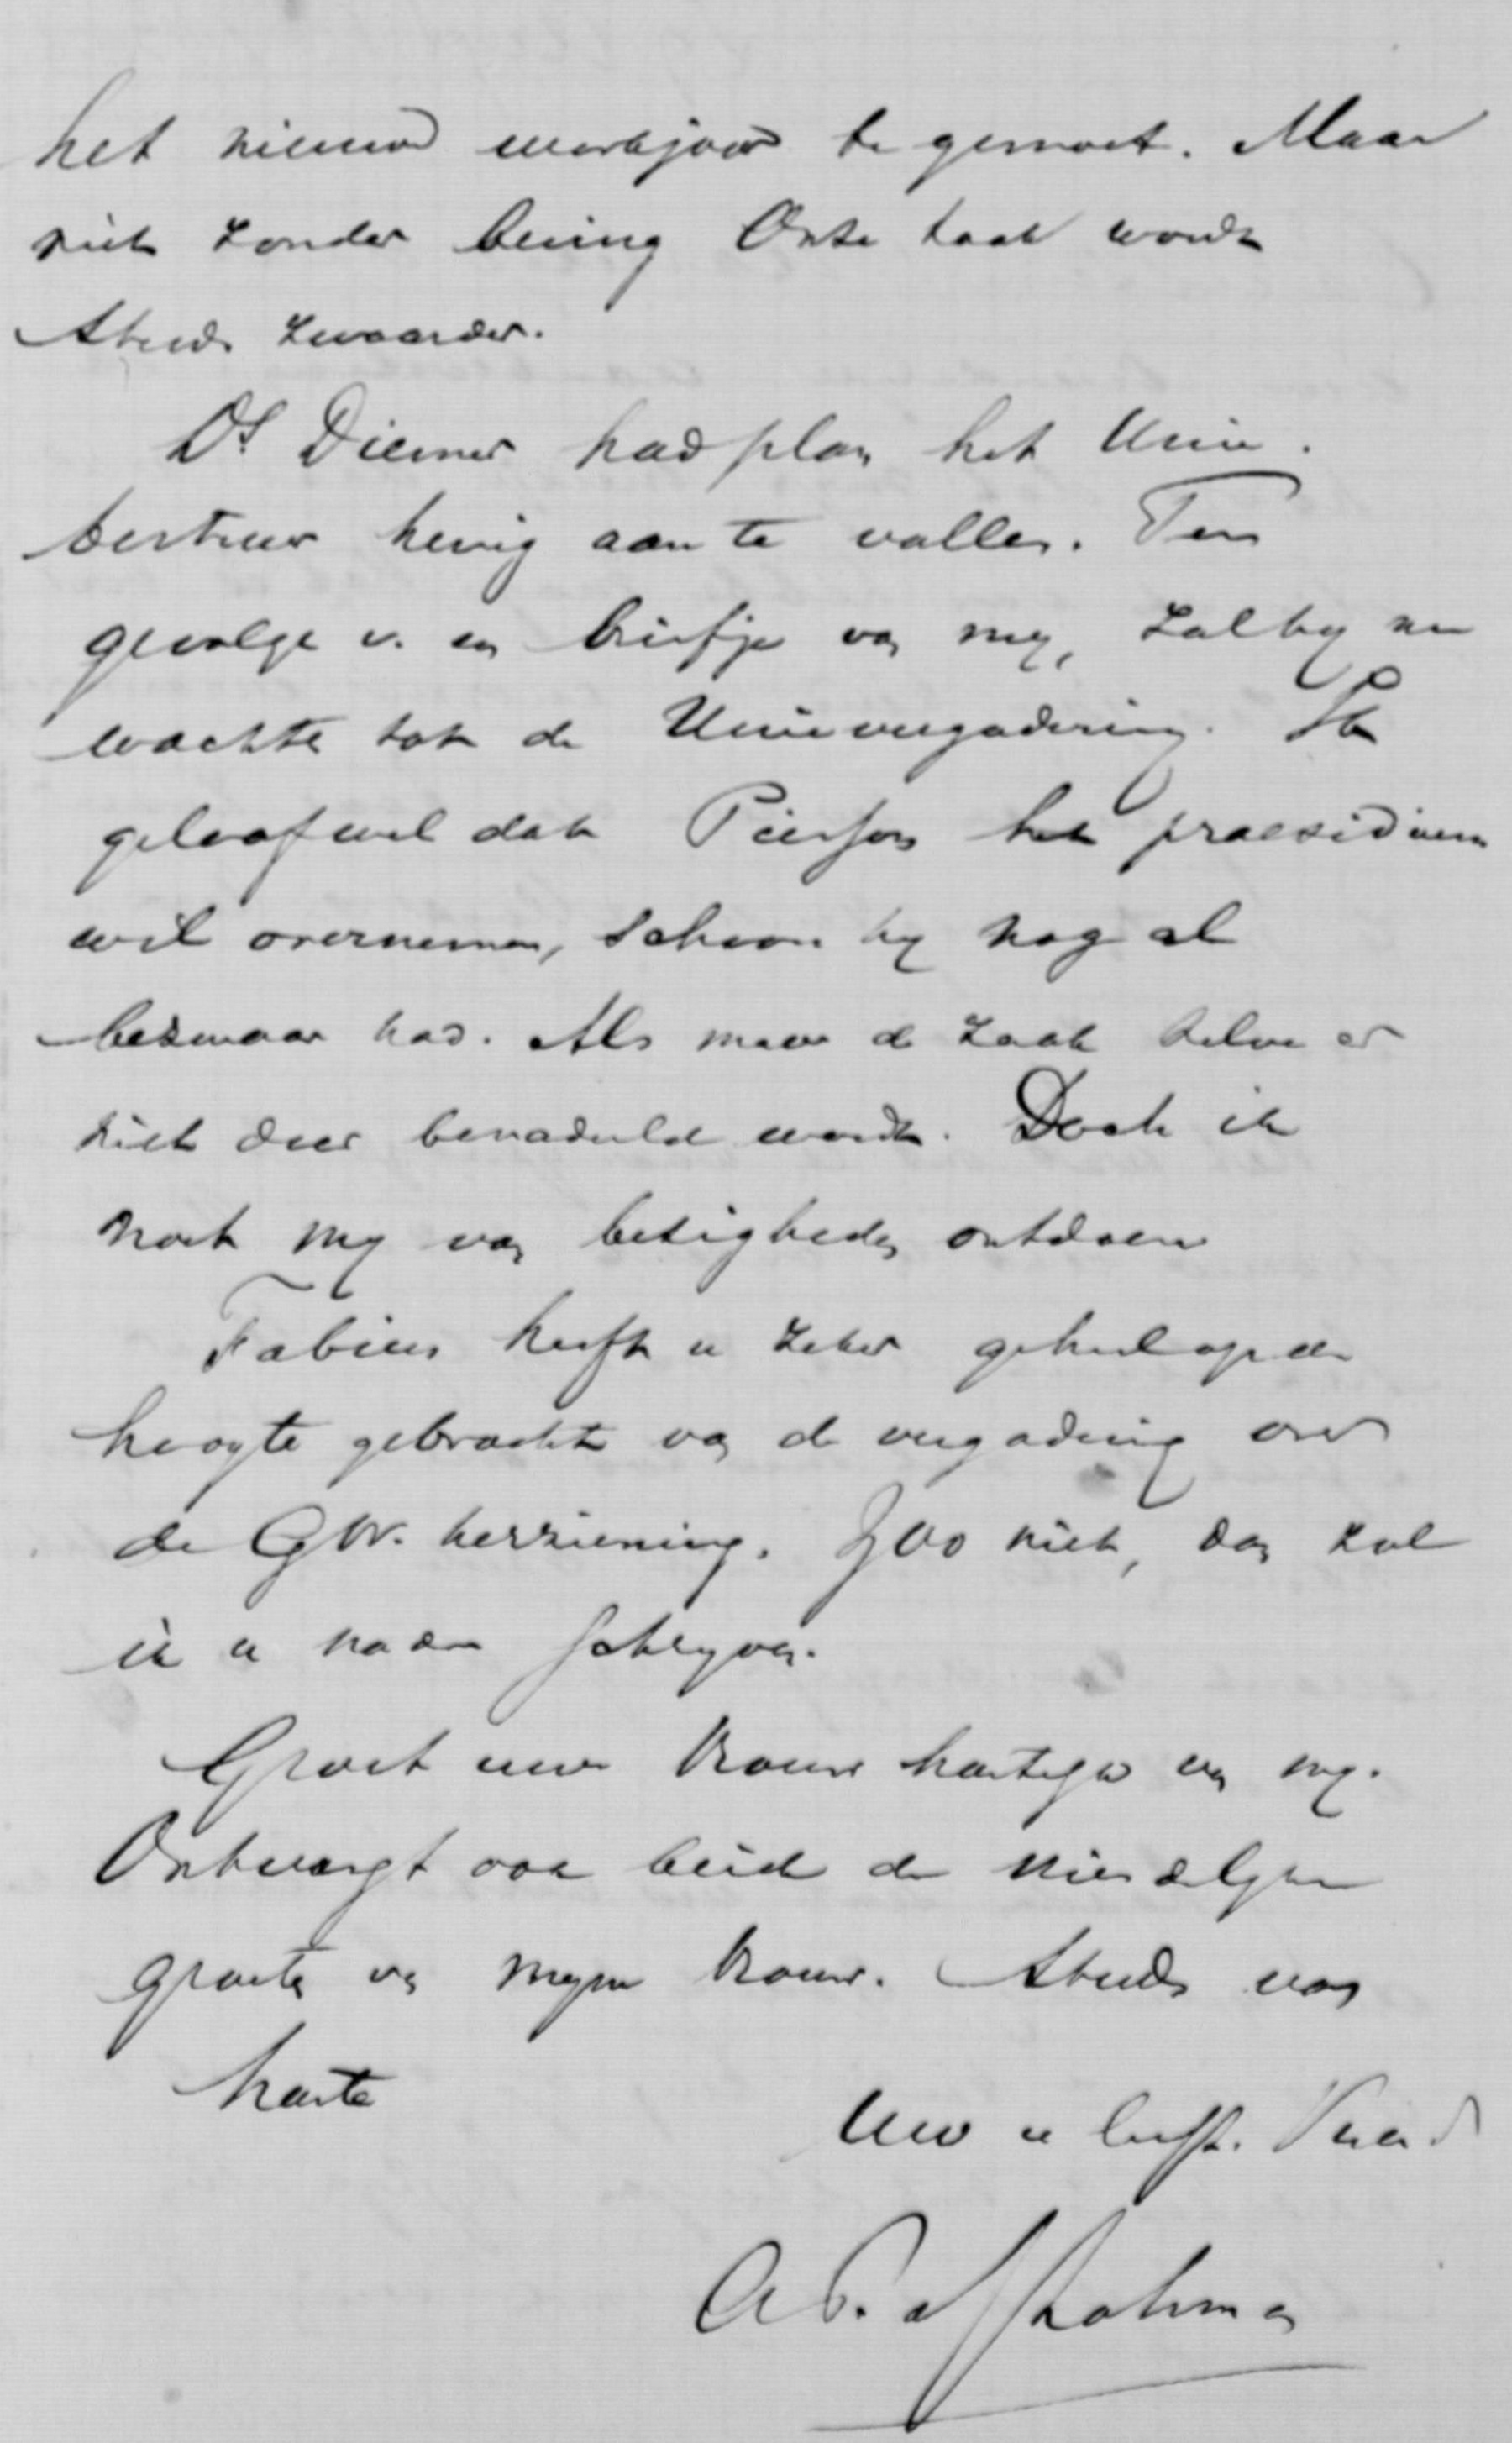 het nieuwe werkjaar te gemoet. Maar
niet zonder beving Onze taak wordt
steeds zwaarder.
Ds Diemer had plan het Unie.
bestuur hevig aan te vallen. Ten
gevolge v. een briefje van my, zal hy nu
wachten tot de Unievergadering. Ik
geloof wel dat Pierson het praesidium
wil overnemen, schoon hy nog al
bezwaar had. Als maar de zaak zelve er
niet door benadeeld wordt. Doch ik
moet my van bezigheden ontdoen
Fabius heeft u zeker geheel op de
hoogte gebracht van de vergadering over
de GW. herziening. Zoo niet, dan zal
ik u nader schryven.
Groet uwe vrouw hartelyk van my.
Ontvangt van beide de vriendelyke
groete van myne vrouw. Steeds van
harte
Uw u liefh. Vriend
A S. d Sf Lohman